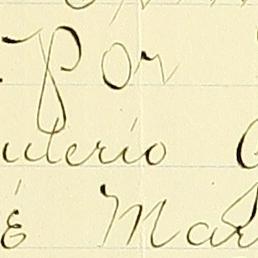 por
uterio
é Mar